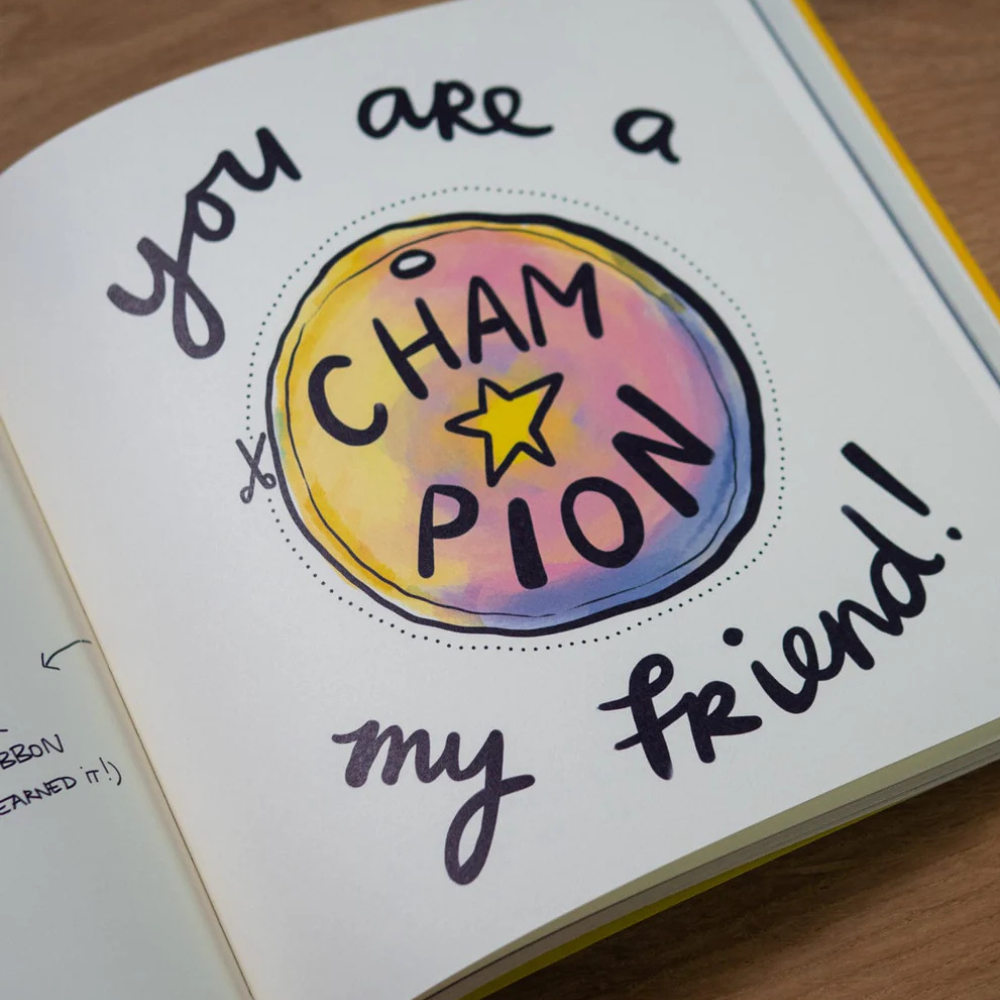 you are a
CHAM
PION
my friend!
BBON
EARNED iT!)